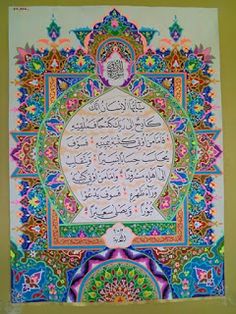 يَٰٓأَيُّهَا الْإِنسَانُ إِنَّكَ
كَادِحٌ إِلَىٰ رَبِّكَ كَدْحًا فَمُلَٰقِيهِ
فَأَمَّا مَنْ أُوتِيَ كِتَٰبَهُ بِيَمِينِهِ فَسَوْفَ
يُحَاسَبُ حِسَابًا يَسِيرًا وَيَنقَلِبُ
إِلَىٰ أَهْلِهِ مَسْرُورًا وَأَمَّا مَنْ أُوتِيَ كِتَٰبَهُ
وَرَاءَ ظَهْرِهِ فَسَوْفَ يَدْعُوا
ثُبُورًا وَيَصْلَىٰ سَعِيرًا